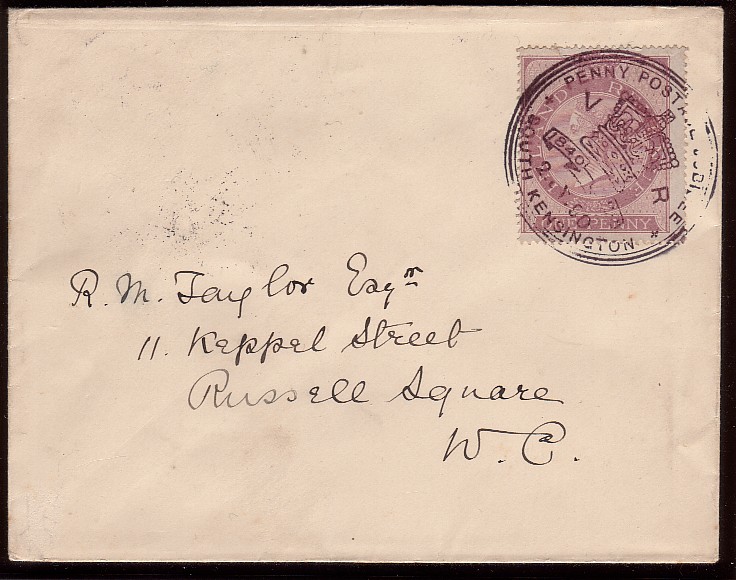 PENNY POSTAGE JUBILEE
V R
1840
2 JY 90
SOUTH KENSINGTON
INLAND RE
ONE PENNY
R. M. Taylor Esqr
11. Keppel Street
Russell Square
W. C.